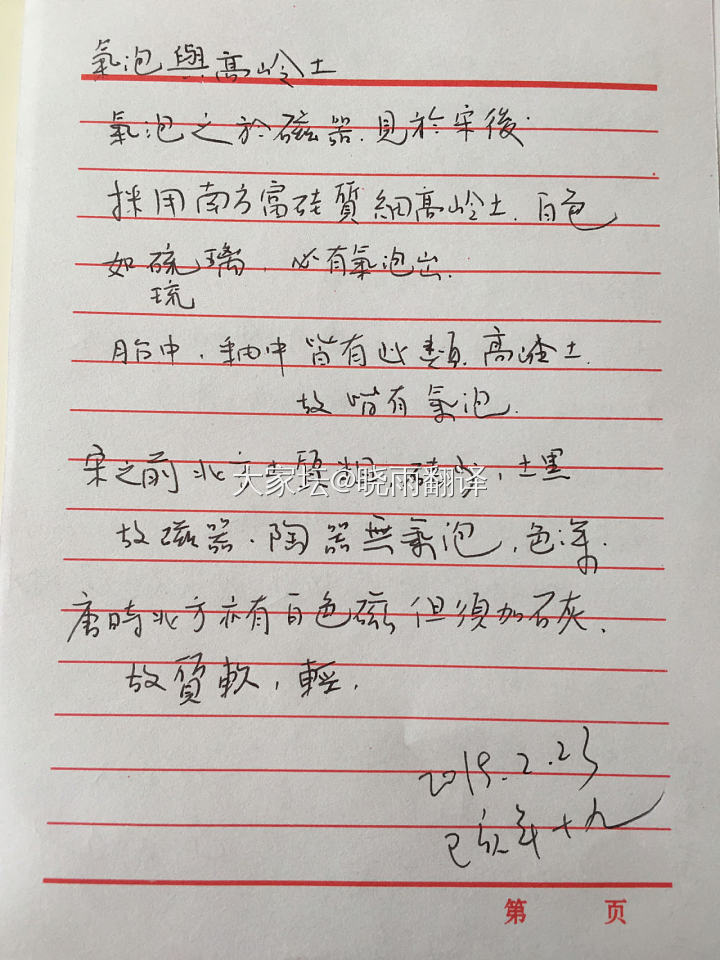 氣泡與高岭土
氣泡之於磁器.見於宋後.
採用南方富硅質細高岭土.白色
如硫璃,必有氣泡出.
琉
胎中,釉中皆有此類.高岭土.
故皆有氣泡.
宋之前北方土質粗,硅少,土黑
大家坛@晓雨翻译
故磁器.陶器無氣泡,色深.
唐時北方亦有白色磁但须加石灰、
故質軟,輕.
2019.2.23
己亥年十九
第 页